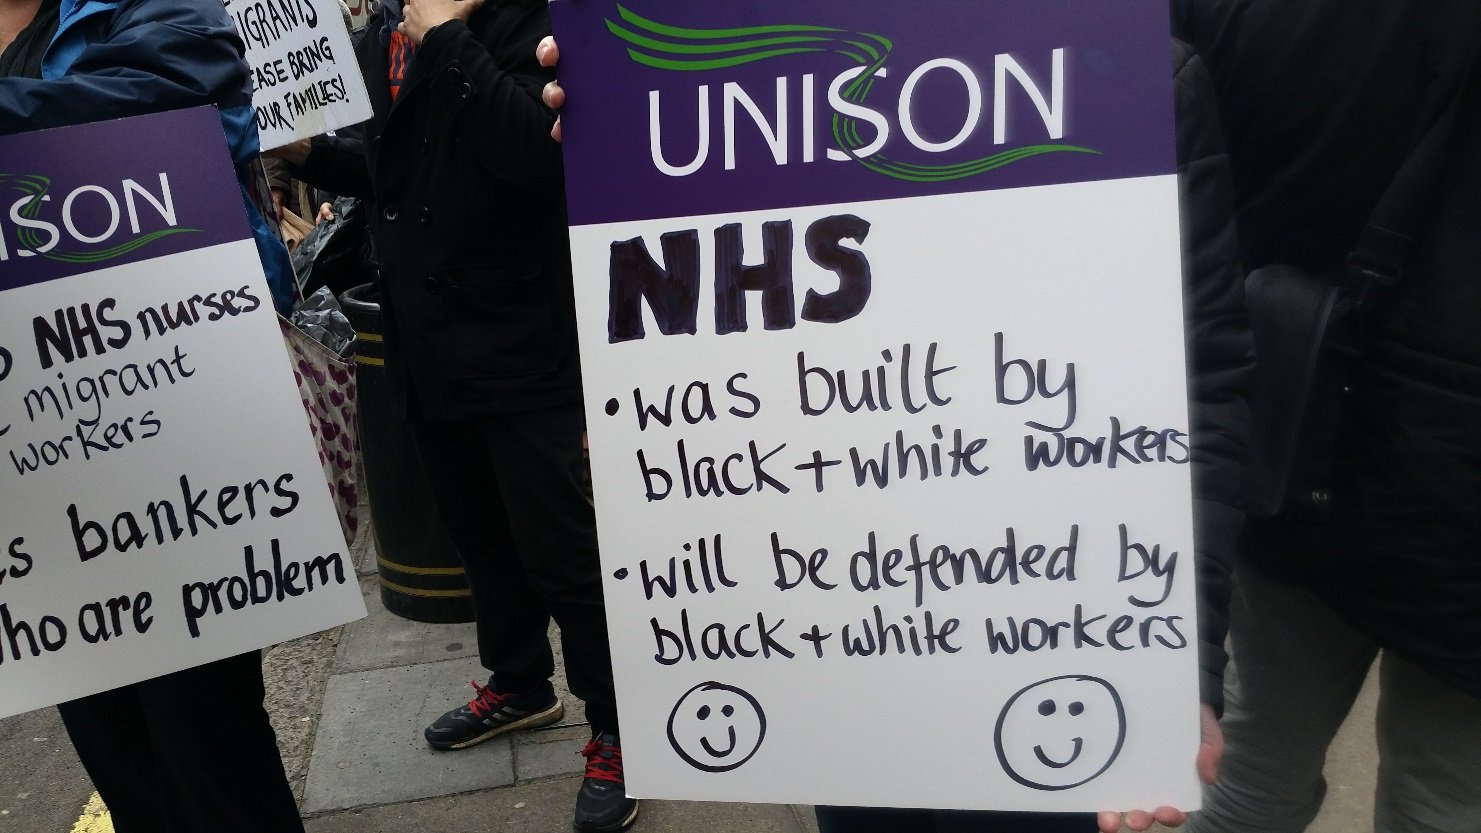 IGRANTS
EASE BRING
OUR FAMILIES!
ISON
NHS nurses
migrant
workers
bankers
who are problem
UNISON
NHS
• was built by
black + white workers
• will be defended by
black + white workers